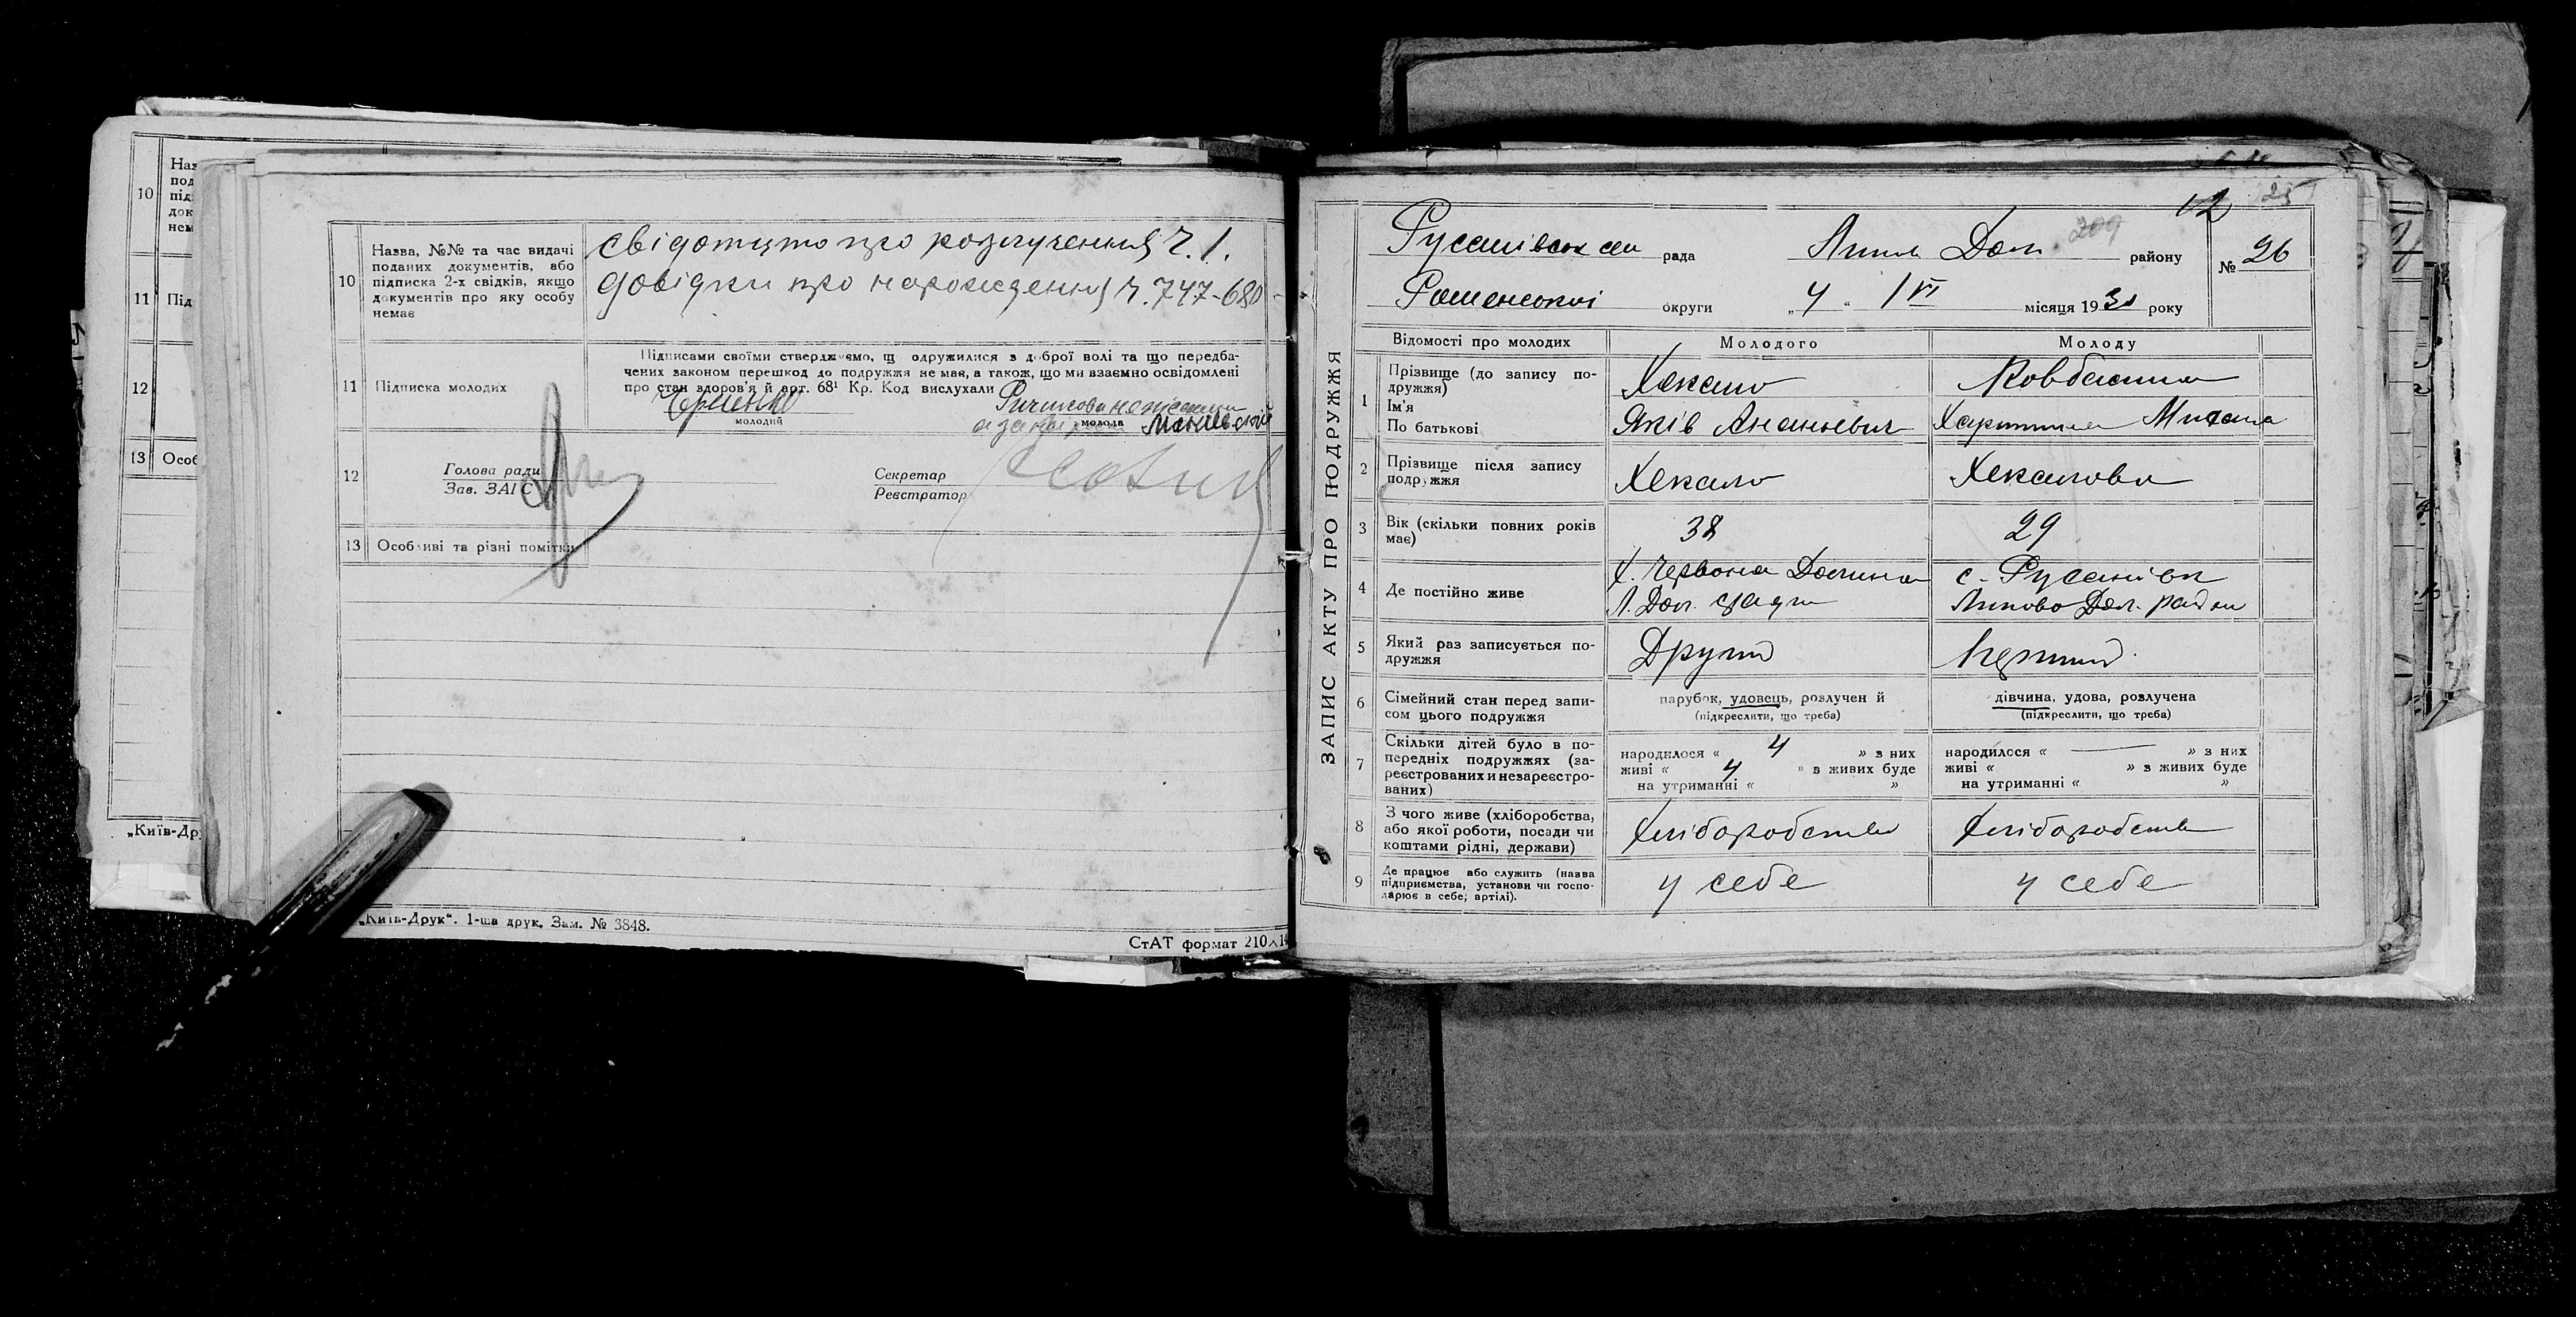 10
11
12
13
„Київ-Др
10
Назва, №№ та час видачі
поданих документів, або
підписка 2-х свідків, якщо
документів про яку особу
немає
свідотцто про розлучення Ч. 1.
довідки про народження Ч. 747-680
11
Підписка молодих
Підписами своїми стверджуємо, щ одружилися з доброї волі та що передба-
чених законом перешкод до подружжя не має, а також, що ми взаємно освідомлені
про стан здоров'я й арт. 68¹ Кр. Код вислухали
молодий
молода
12
Голова ради
Зав. ЗАГС
Секретар
Реєстратор
13
Особливі та різні помітки
„Київ-Друк“. 1-ша друк. Зам. № 3848.
СтАТ формат 210×14
ЗАПИС АКТУ ПРО ПОДРУЖЖЯ
12
25
209
Русанівськ сел рада
Липов Дол. району
№ 26
Роменської округи
„4 “ VI місяця 1930 року
Відомості про молодих
Молодого
Молоду
1
Прізвище (до запису по-
дружжя)
Ім'я
По батькові
Хекало
Яків Ананневич
Ковбасина
Харитина Михайл
2
Прізвище після запису
подружжя
Хекало
Хекалова
3
Вік (скільки повних років
має)
38
29
4
Де постійно живе
Х. Червона Долина
Л. Дол. району
с. Русанівк
Липово Дол. району
5
Який раз записується по-
дружжя
Другий
Перший
6
Сімейний стан перед запи-
сом цього подружжя
парубок, удовець, розлучен й
(підкреслити, що треба)
дівчина, удова, розлучена
(підкреслити, що треба)
7
Скільки дітей було в по-
передніх подружжях (за-
реєстрованих и незареєстро-
ваних)
народилося « 4 » з них
живі « 4 » в живих буде
на утриманні « »
народилося « — » з них
живі « » в живих буде
на утриманні « »
8
З чого живе (хліборобства,
або якої роботи, посади чи
коштами рідні, держави)
Хліборобства
Хліборобства
9
Де працює або служить (назва
підприємства, установи чи госпо-
дарює в себе, артілі).
у себе
у себе